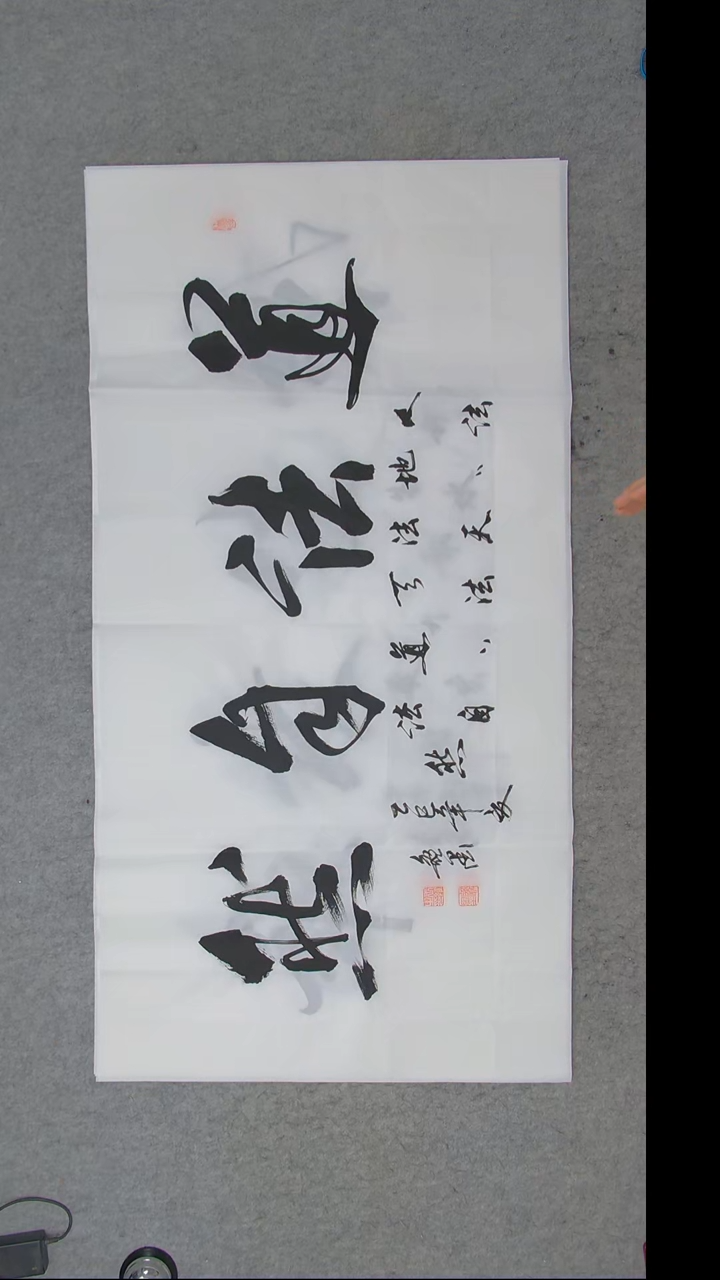 道法自然
人法
地〻
法天
天法
道〻
法自
然
乙巳年夏